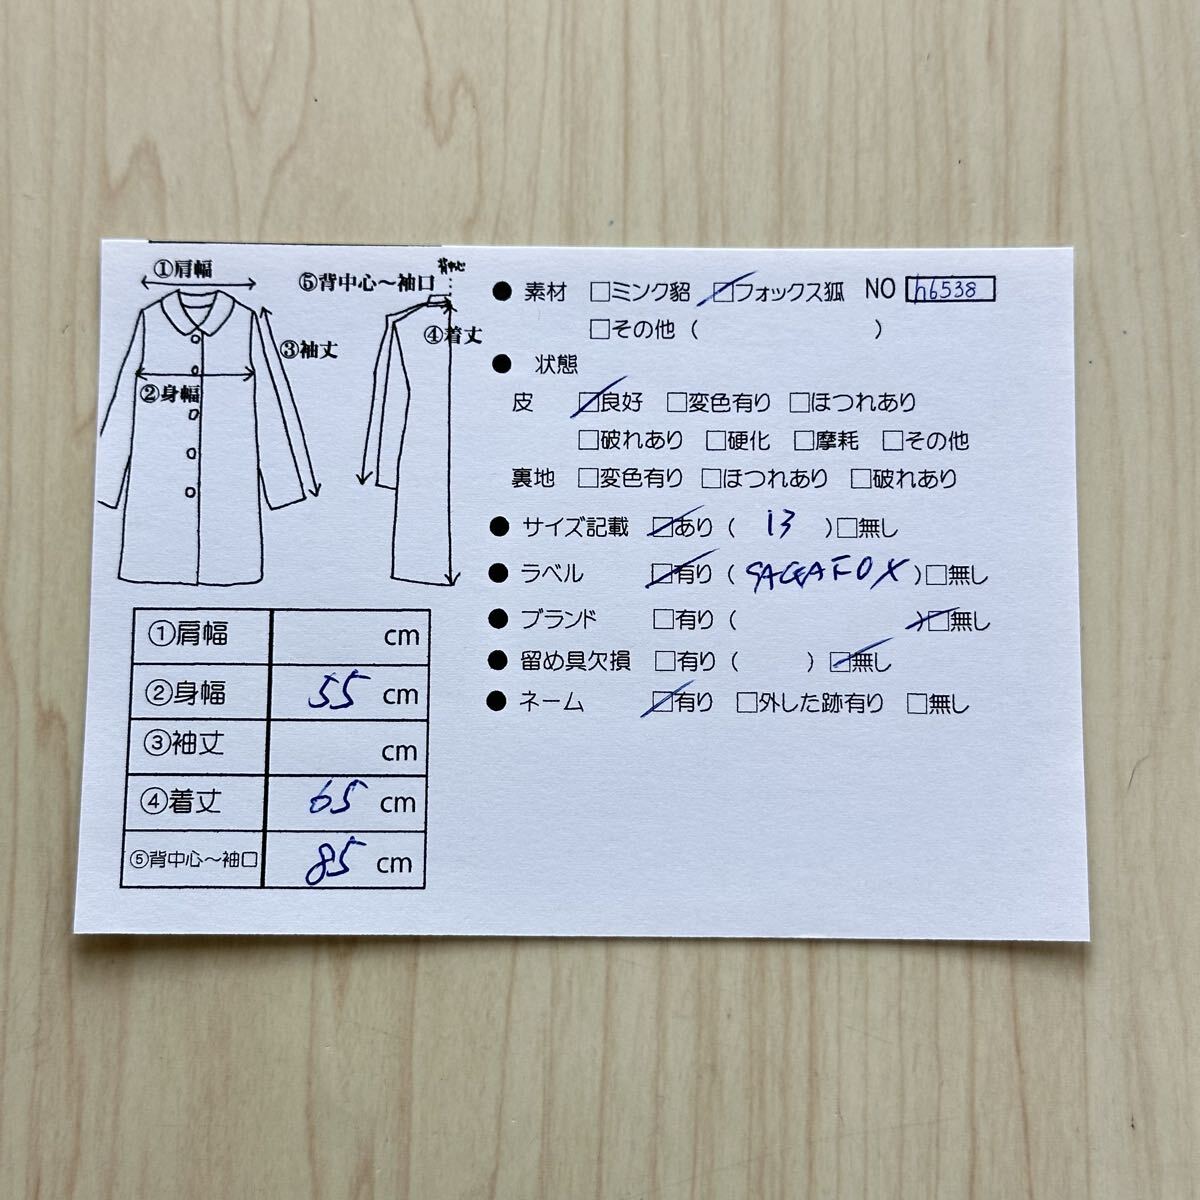 ①肩幅
⑤背中心～袖口
背中心
③袖丈
④着丈
②身幅
①肩幅 cm
②身幅 55 cm
③袖丈 cm
④着丈 65 cm
⑤背中心～袖口 85 cm
● 素材 □ミンク貂 ☑フォックス狐 NO h6538
□その他 ( )
● 状態
皮 ☑良好 □変色有り □ほつれあり
□破れあり □硬化 □摩耗 □その他
裏地 □変色有り □ほつれあり □破れあり
● サイズ記載 ☑あり ( 13 ) □無し
● ラベル ☑有り ( SAGAFOX ) □無し
● ブランド □有り ( ) ☑無し
● 留め具欠損 □有り ( ) ☑無し
● ネーム ☑有り □外した跡有り □無し